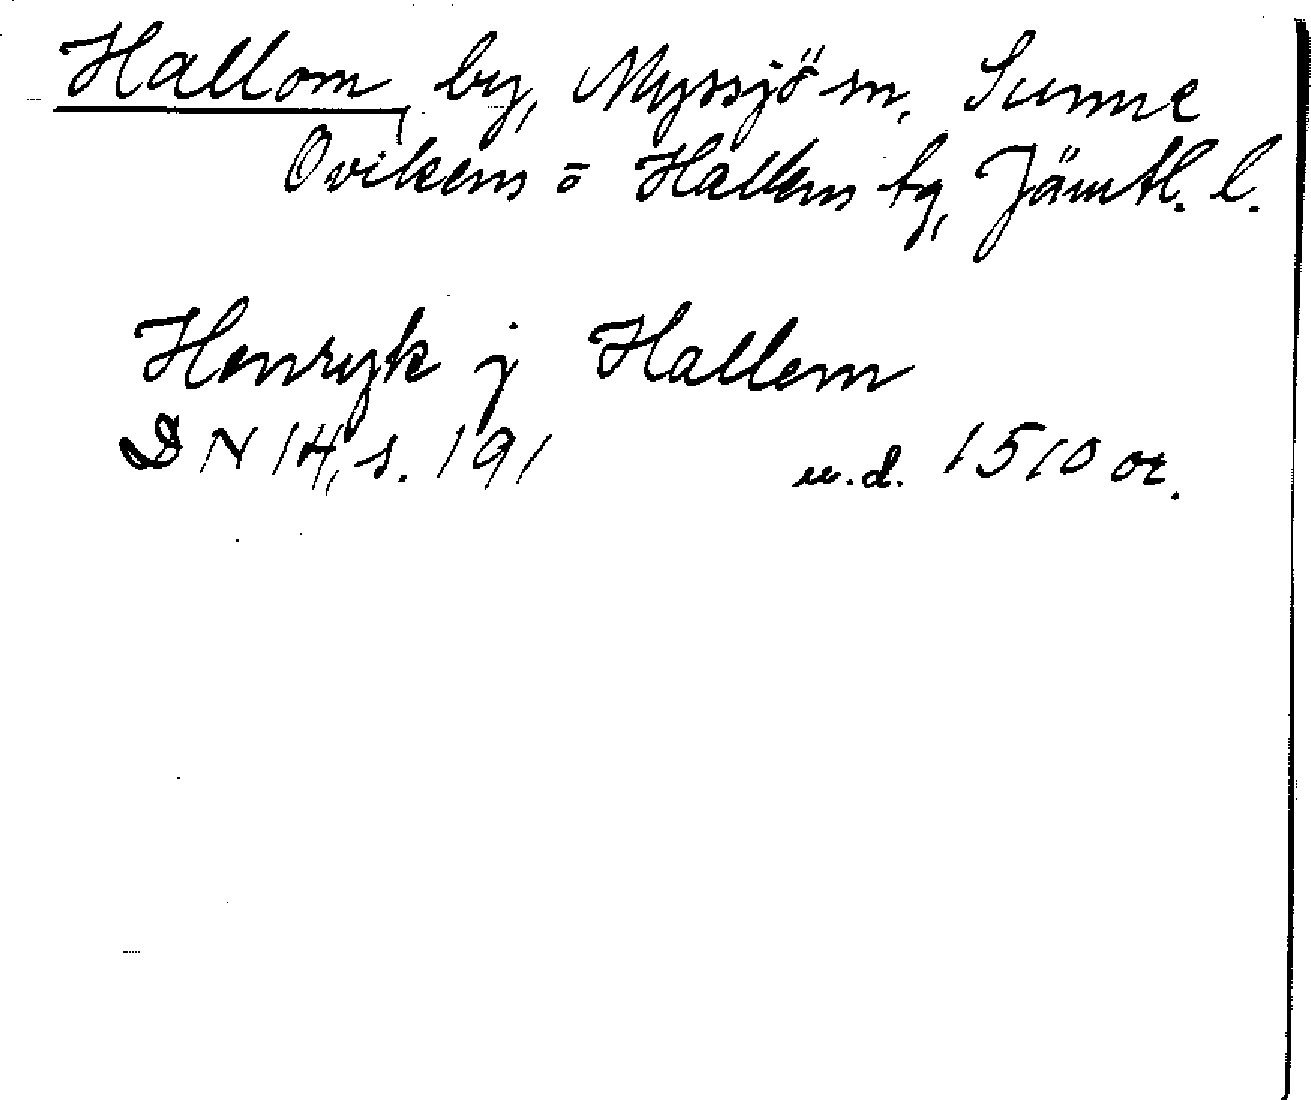 Hallom, by, Myssjö sn, Sunne
Ovikens o Hallens tg, Jämtl. l.
Henryk j Hallem
DN 14, s. 191 u.d. 1510 or.